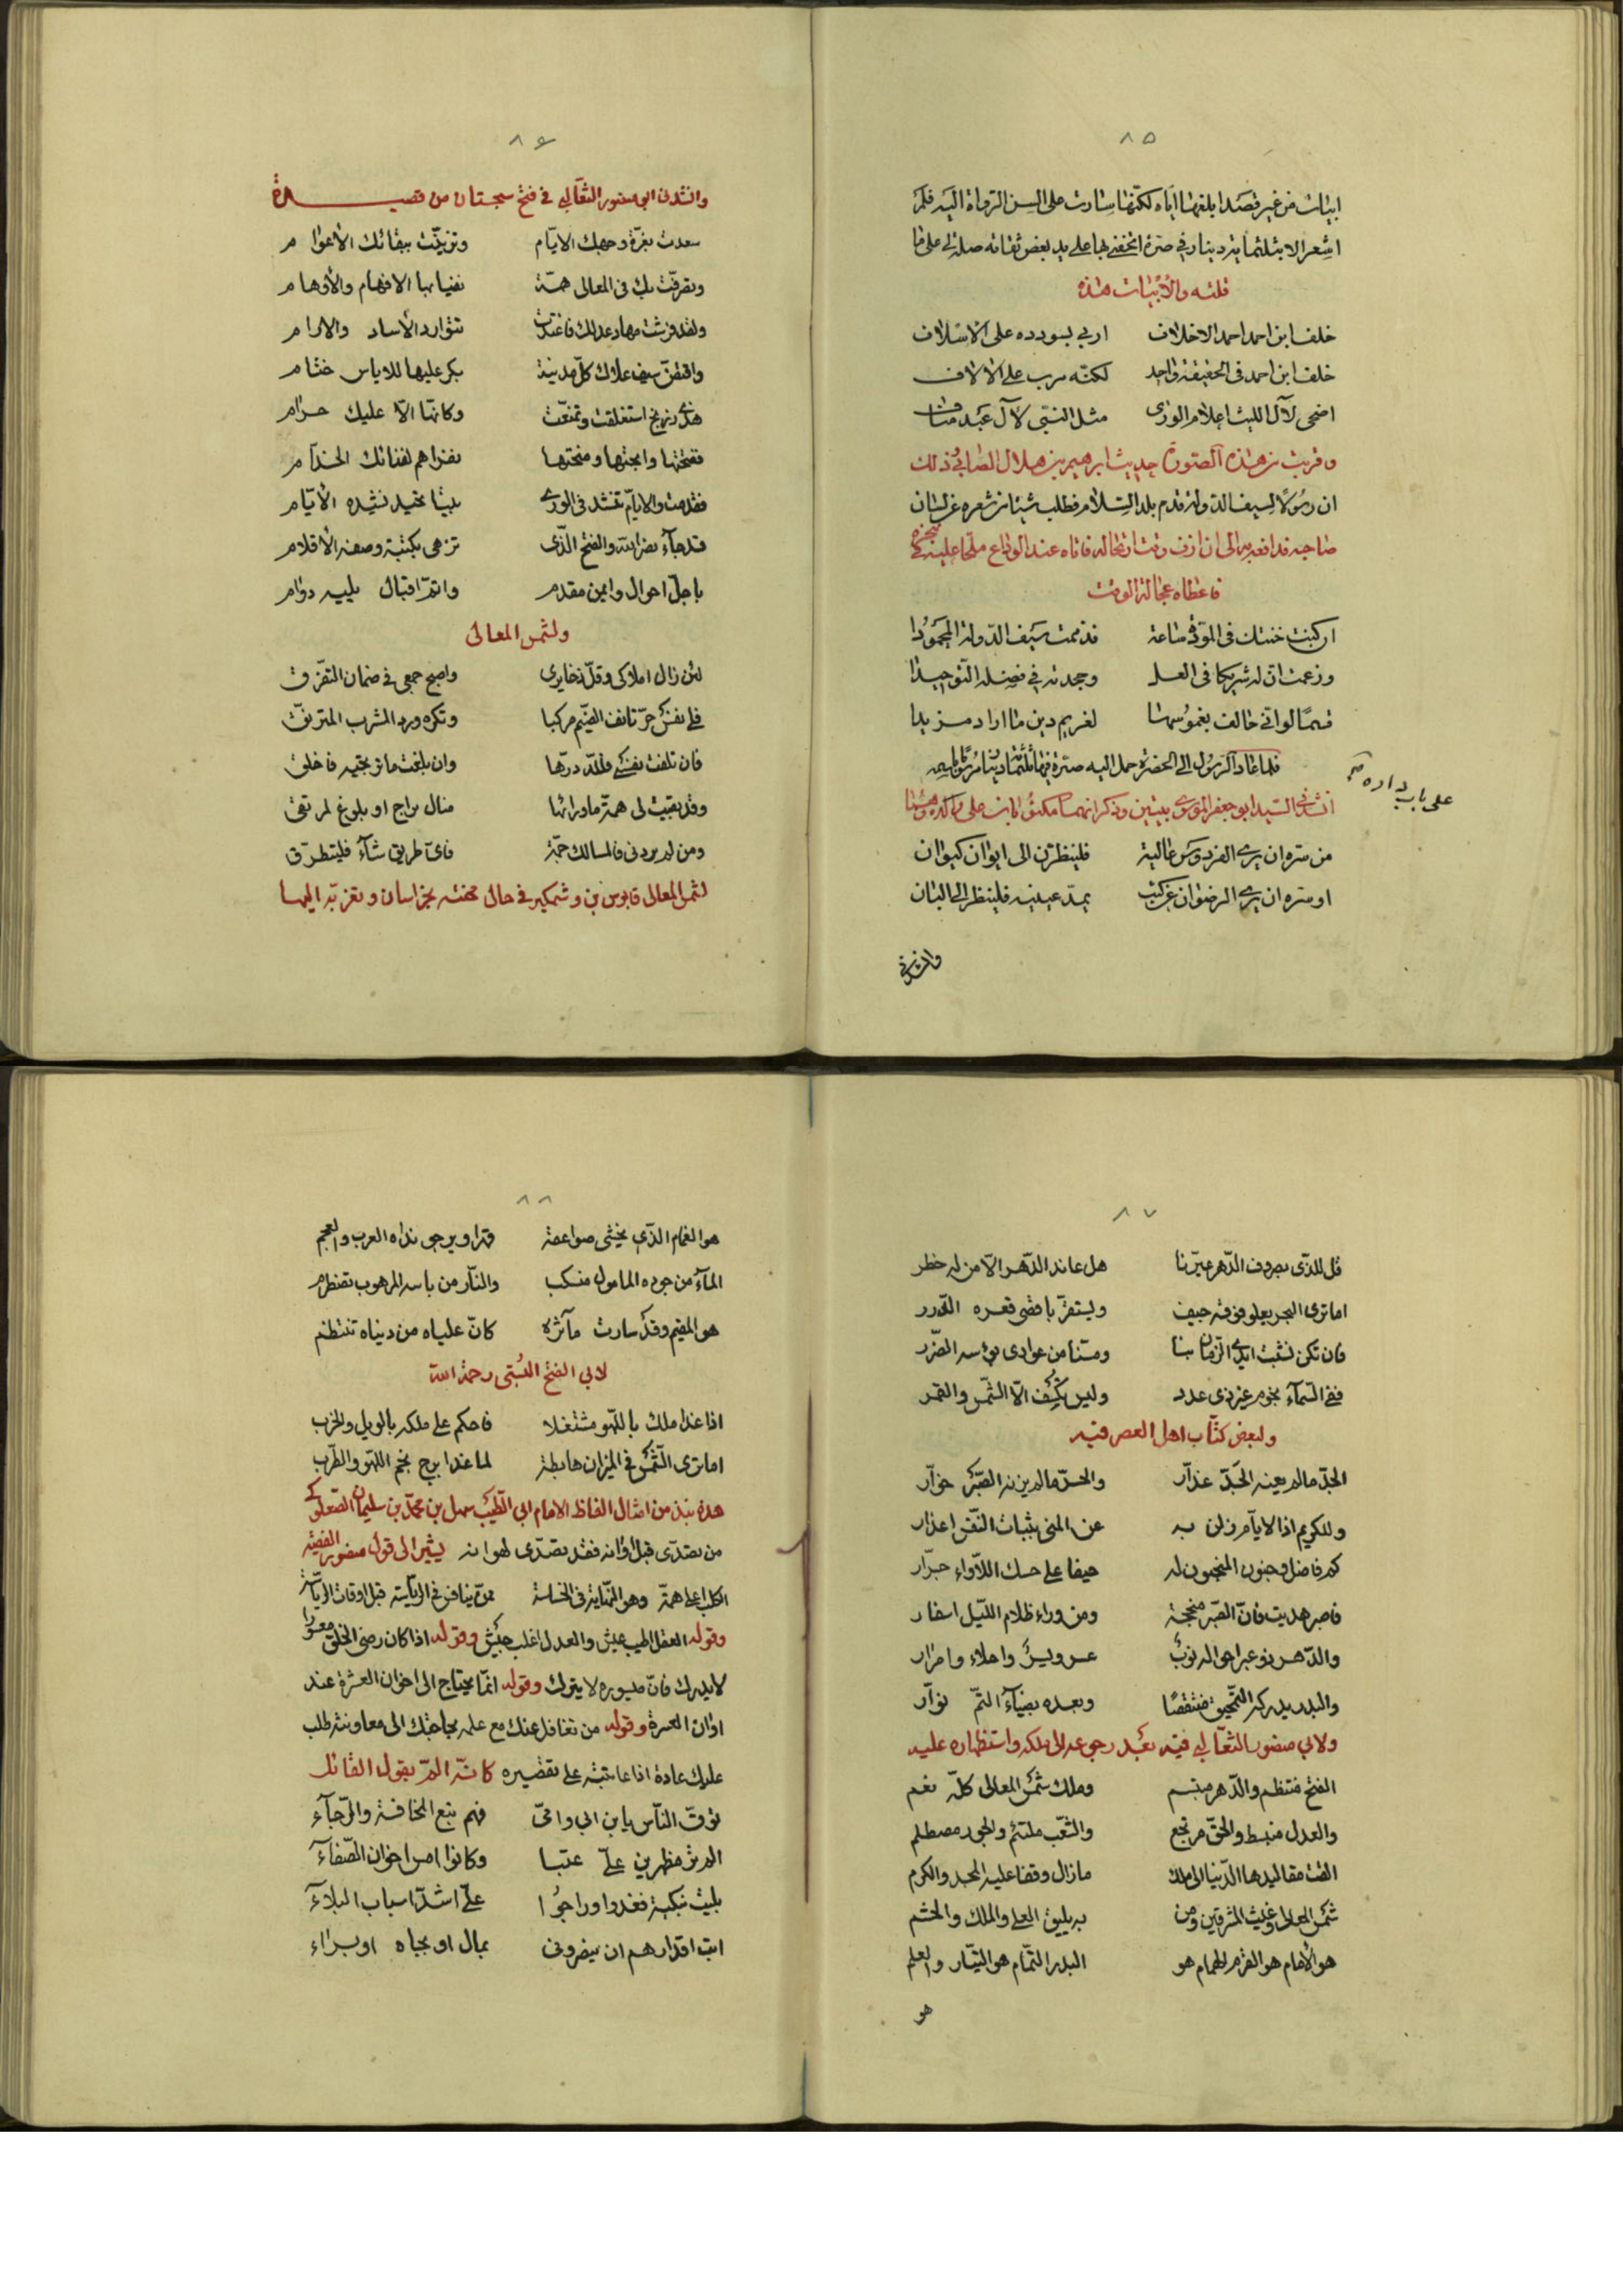 ٨٥
ابيات من غير قصد ابلغها اياه لكنها سارت على السن الرواة اليه فلم
اشعر الا بثلثمائة دينار في صرة اتحفني بها على يد بعض ثقاته صلة لي على ما
قلته والأبيات هذه
خلف ابن احمد احمد الاخلاف اربى بسودده على الاسلاف
خلف ابن احمد في الحقيقة واحد لكنه مرب على الآلاف
اضحى لآل الليث اعلام الورى مثل النبي لآل عبد مناف
وقريب من هذه الصورة حديث ابرهيم بن هلال الصابي وذلك
ان رسولا لسيف الدولة قدم بلد السلام فطلب شيئا من شعره عن لسان
صاحبه فدافعه به الى ان ازف وقت ارتحاله فاتاه عند الوداع ملحا عليه
فاعطاه عجالة الوقت
ان كنت خنتك في المودة ساعة فذممت سيف الدولة المحمودا
وزعمت ان له شريكا في العلى وجحدته في فضله التوحيدا
قسما لو اني حالف بغموسها لغريم دين ما اراد مزيدا
فلما عاد الرسول الى الحضرة حمل اليه صرة فيها ثلثمائة دينار
على باب داره صح
انشدني السيد ابو جعفر الموسوي بيتين وذكر انهما مكتوبان
من سره ان يرى الفردوس عالية فلينظرن الى ايوان كيوان
او سره ان يرى الرضوان عن كثب بمد عينيه فلينظر الى الباني
وانشدني
٨٦
وانشدني ابو منصور الثعالبي في فتح سجستان من قصيدة
سعدت بغرة وجهك الايام وتزينت ببقائك الاعوام
وتصرفت بك في المعالي همة تعيا بها الافهام والأوهام
ولقد فرشت مهاد عدلك فاغتدت تتوارد الأساد والارام
وافتض سيف علاك كل مدينة بكر عليها للاياس ختام
هذي زرنج استغلقت وتمنعت وكانها الا عليك حرام
ففتحتها وابحتها ومنحتها
فقدمت والايام تنشد في الورى بيتا تجيد نشيده الأيام
قد جاء نصر الله والفتح الذي تزهى بكتبة وصفه الأقلام
باجل احوال وايمن مقدم واتم اقبال يليه دوام
ولشمس المعالي
لئن زال املاكي وقل ذخايري واصبح جمعي في ضمان التفرق
فلي نفس حر تانف الضيم مركبا وتكره ورد المشرب المتريق
فان تلفت نفسي فلله درها وان بلغت ما ترتجيه فاخلق
وقد بقيت لي همة ما وراءها منال لراج او بلوغ لمرتقي
ومن لم يردني فالمسالك جمة فاي طريق شاء فليتطرق
لشمس المعالي قابوس بن وشمكير في حال محنته بخراسان وتغربه اليها
٨٧
قل للذي بصروف الدهر عيرنا هل عاند الدهر الا من له خطر
اما ترى البحر يعلو فوقه جيف ويستقر باقصى قعره الدرر
فان تكن نشبت ايدي الزمان بنا ومسنا من عوادي بؤسه الضرر
ففي السماء نجوم غير ذي عدد وليس يكسف الا الشمس والقمر
ولبعض كتاب اهل العصر فيه
الجد ما لم يعنه الجد غدار والحر ما لم يزنه الصبر خوار
وللكريم اذا الايام زلن به عن المنى بثبات النفس اعذار
كم فاضل وجنون المنجنون له حيفا على حسك اللأواء جرار
فاصبر هديت فان الصبر منجحة ومن وراء ظلام الليل اسفار
والدهر ذو عبر احواله نوب عسر ويسر واحلاء وامرار
والبدر يدركه التمحيق منتقصا وبعده بضياء التم نوار
ولابي منصور الثعالبي فيه بعد رجوعه الى ملكه واستظهاره عليه
الفتح منتظم والدهر مبتسم وملك شمس المعالي كله نعم
والعدل منبسط والحق مرتجع والشعب ملتئم والجور مصطلم
القت مقاليدها الدنيا الى ملك ما زال وقفا عليه المجد والكرم
شمس المعالي وغيث المشرقين ومن به يليق العلى والملك والحشم
هو الامام هو القرم الهمام هو البدر التمام هو التيار والعلم
هو
٨٨
هو الغمام الذي يخشى صواعقه قهرا ويرجى نداه العرب والعجم
الماء من جوده المامول منسكب والنار من باسه المرهوب تضطرم
هو المقيم وقد سارت مآثره كان علياه من دنياه تنتظم
لابي الفتح البستي رحمة الله
اذا غدا ملك باللهو مشتغلا فاحكم على ملكه بالويل والحرب
اما ترى الشمس في الميزان هابطة لما غدا برج نجم اللهو والطرب
هذه نبذ من امثال الفاظ الامام ابي الطيب سهل بن محمد بن سليمان الصعلوكي
من تصدى قبل اوانه فقد تصدى لهوانه يشير الى قول منصور الفقيه
الكلب اعلى همة وهو النهاية في الخساسة ممن ينافس في الرياسة قبل اوقات الرياسة
وقوله العقل اطيب عيش والعدل اغلب جيش وقوله اذا كان رضى الخلق معسورا
لا يدرك فان ميسوره لا يترك وقوله انما يحتاج الى اخوان العشرة عند
اوان العسرة وقوله من تغافل عنك مع علمه بحاجتك الى معاونته طلب
عليك عادة اذا عاتبته على تقصيره كانه الم بقول القائل
توق الناس يا بن ابي وامي فهم تبع المخافة والرجاء
الم تر مظهرين علي عتبا وكانوا امس اخوان الصفاء
بليت بنكبة فغدوا وراحوا علي اشد اسباب البلاء
ابت اقدارهم ان ينصروني بمال او بجاه او براء